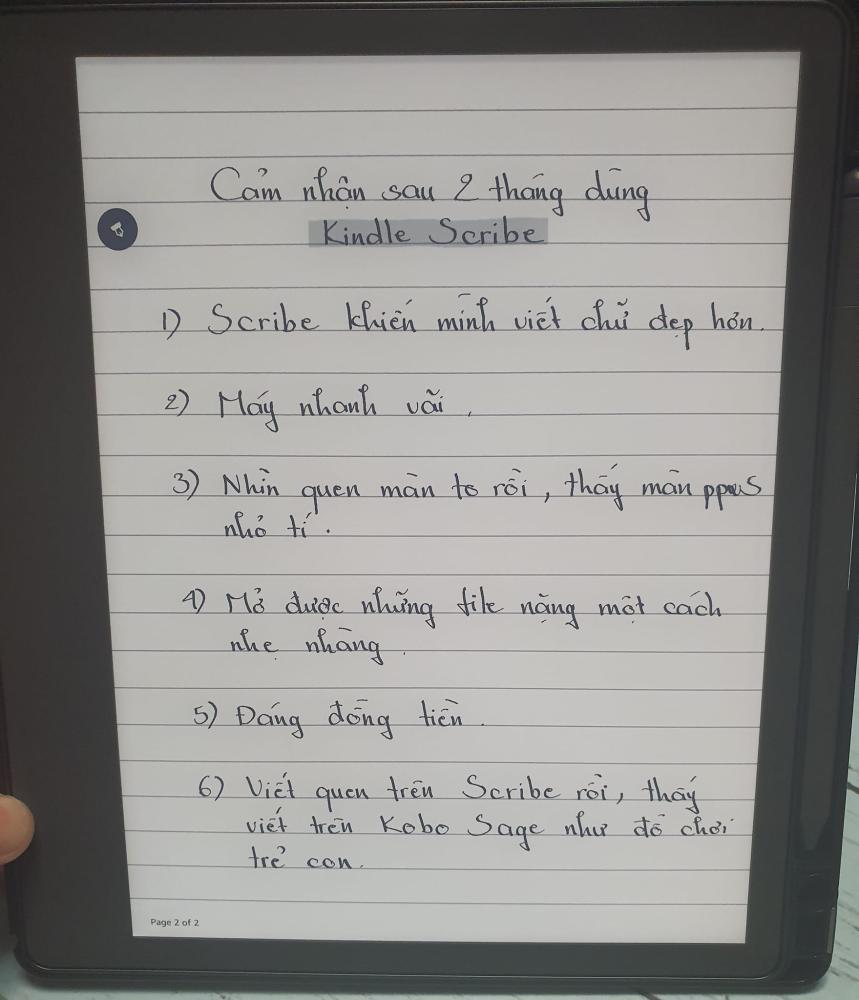 Cảm nhận sau 2 tháng dùng
Kindle Scribe
1) Scribe khiến mình viết chữ đẹp hơn.
2) Máy nhanh vãi.
3) Nhìn quen màn to rồi, thấy màn ppw5
nhỏ tí.
4) Mở được những file nặng một cách
nhẹ nhàng.
5) Đáng đồng tiền.
6) Viết quen trên Scribe rồi, thấy
viết trên Kobo Sage như đồ chơi
trẻ con.
Page 2 of 2